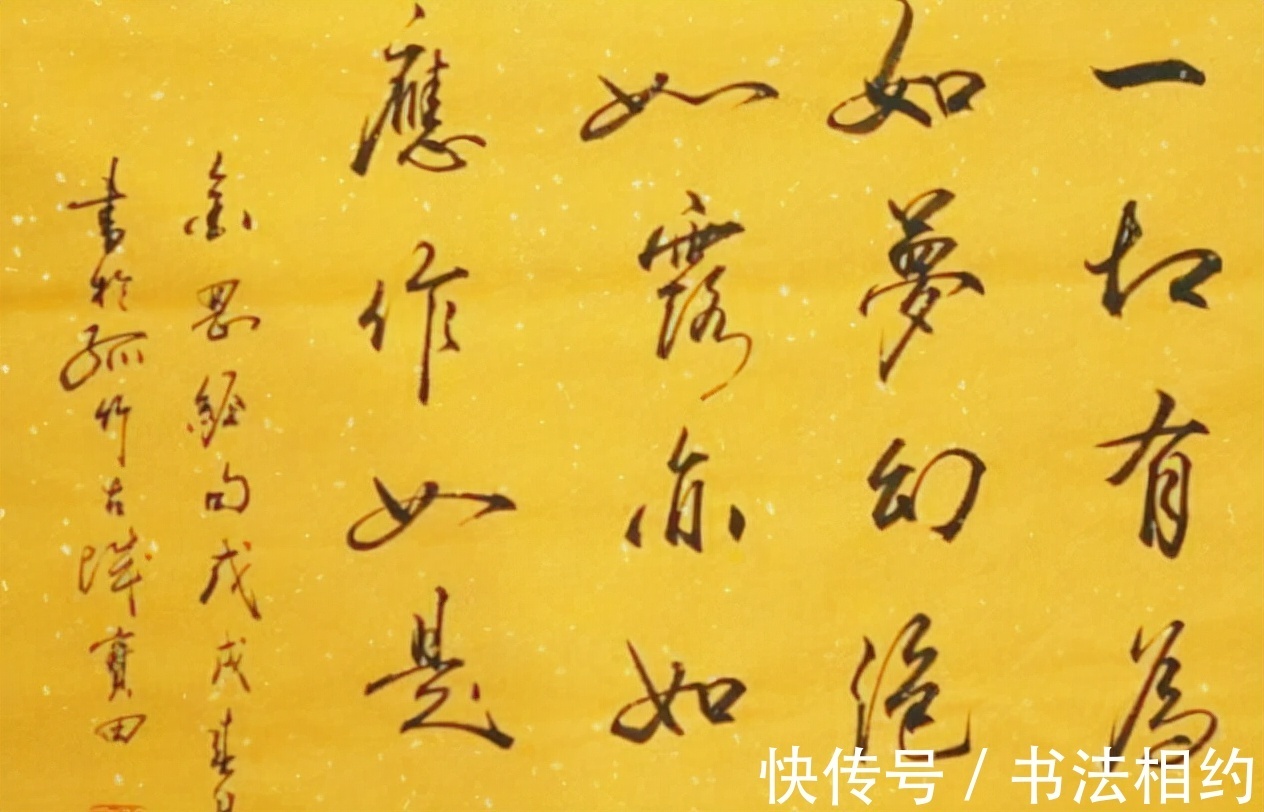 一切有為
如夢幻泡
如露亦如
應作如是
金剛經句戊戌春
書於孤竹古城寶田
快传号 / 书法相约